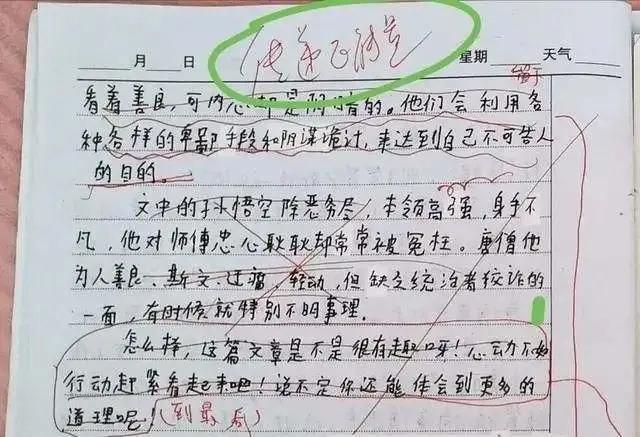 传递正能量
月 日 星期 天气
看着善良，可内心却是阴暗的。他们会利用各
种各样的卑鄙手段和阴谋诡计，来达到自己不可告人
的目的。
文中的孙悟空除恶务尽，本领高强，身手不
凡，他对师傅忠心耿耿却常常被冤枉。唐僧他
为人善良、斯文、迂腐、轻动，但缺乏统治者狡诈的
一面，有时候就特别不明事理。
怎么样，这篇文章是不是很有趣呀！心动不如
行动赶紧看起来吧！说不定你还能体会到更多的
道理呢！（到最后）